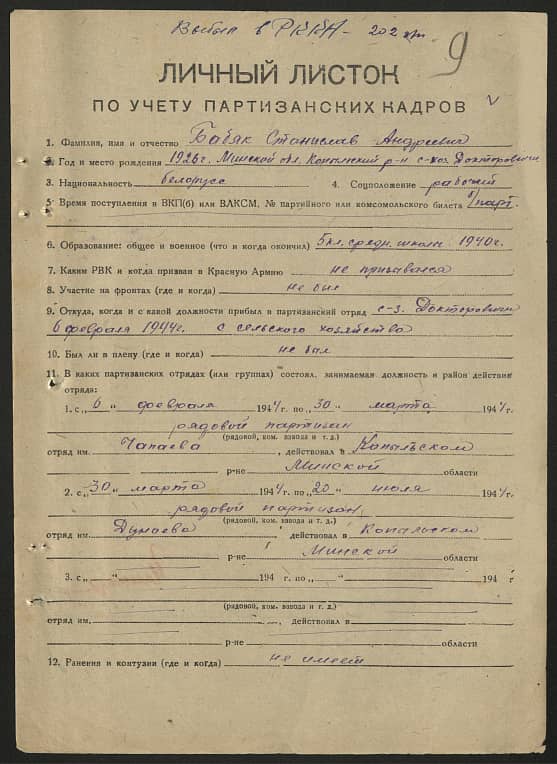 Выбыл в РККА - 202
9
ЛИЧНЫЙ ЛИСТОК
ПО УЧЕТУ ПАРТИЗАНСКИХ КАДРОВ
1. Фамилия, имя и отчество Бабяк Станислав Андреевич
2. Год и место рождения 1926г. Минской обл. Копыльский р-н с-хоз Докторовичи
3. Национальность белорусс 4. Соцположение рабочий
5. Время поступления в ВКП(б) или ВЛКСМ, № партийного или комсомольского билета б/парт.
6. Образование: общее и военное (что и когда окончил) 5 кл. средн. школы 1940г.
7. Каким РВК и когда призван в Красную Армию не призывался
8. Участие на фронтах (где и когда) не был
9. Откуда, когда и с какой должности прибыл в партизанский отряд с-з. Докторовичи
6 февраля 1944г. с сельского хозяйства
10. Был ли в плену (где и когда) не был
11. В каких партизанских отрядах (или группах) состоял, занимаемая должность и район действия
отряда:
1. с „6“ февраля 1944 г. по „30“ марта 1944 г.
рядовой партизан
(рядовой, ком. взвода и т. д.)
отряд им. Чапаева, действовал в Копыльском
р-не Минской области
2. с „30“ марта 1944 г. по „20“ июля 1944 г.
рядовой партизан
(рядовой, ком. взвода и т. д.)
отряд им. Дунаева действовал в Копыльском
р-не Минской области
3. с „ “ 194 г. по „ “ 194 г
(рядовой, ком. взвода и т. д.)
отряд им. , действовал в
р-не области
12. Ранения и контузии (где и когда) не имеет